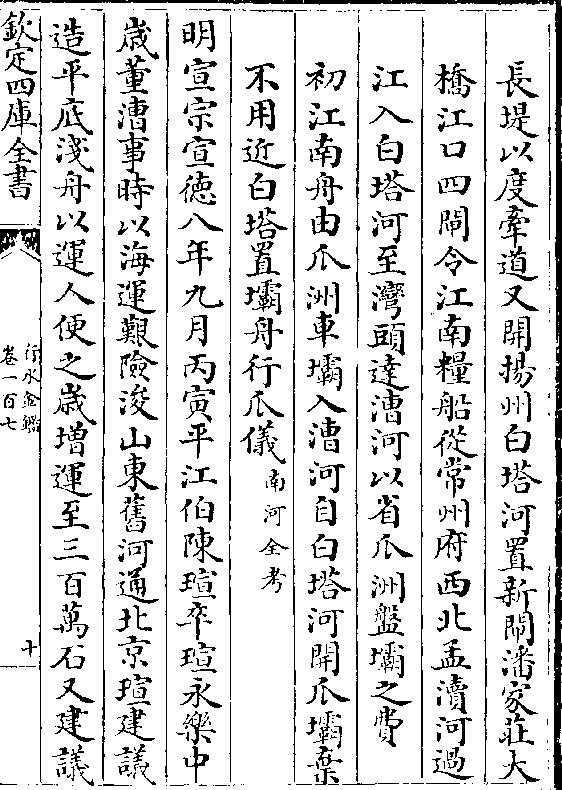 長堤以度牽道又開揚州白塔河置新閘潘家莊大
橋江口四閘令江南糧船從常州府西北孟瀆河過
江入白塔河至灣頭達漕河以省瓜洲盤壩之費
初江南舟由瓜洲車壩入漕河自白塔河開瓜壩棄
不用近白塔置壩舟行瓜儀南河全考
明宣宗宣德八年九月丙寅平江伯陳瑄卒瑄永樂中
歲董漕事時以海運艱險浚山東舊河通北京瑄建議
造平底淺舟以運人便之歲增運至三百萬石又建議
欽定四庫全書
行水金鑑
卷一百七
十